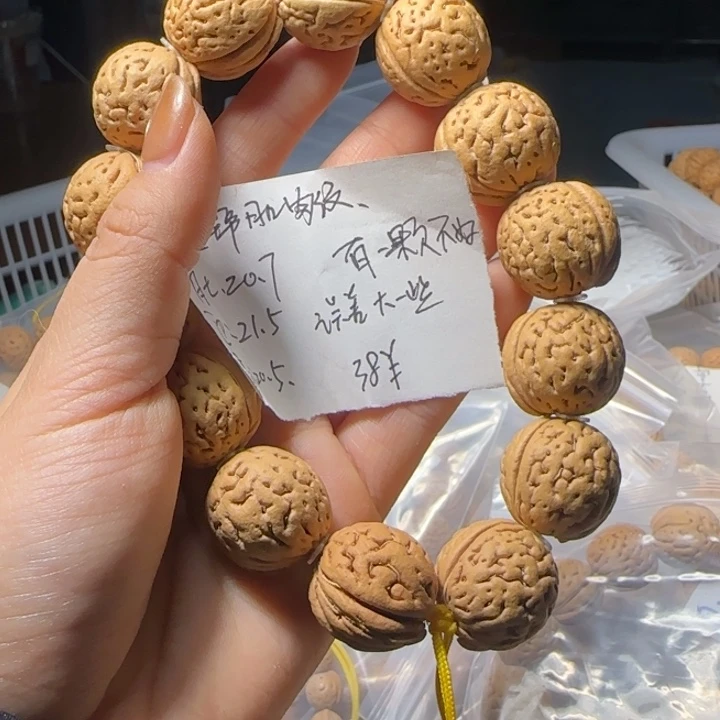 肌肉纹、
肚.20.7 有一颗不好
.21.5 误差大一些
20.5. 38¥